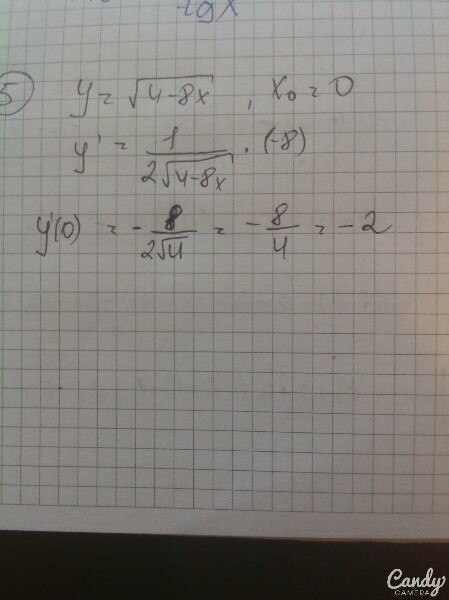 tg x
5 y = √(4-8x) , x₀ = 0
y' = 1/(2√(4-8x)) · (-8)
y'(0) = - 8/(2√4) = - 8/4 = - 2
Candy
CAMERA